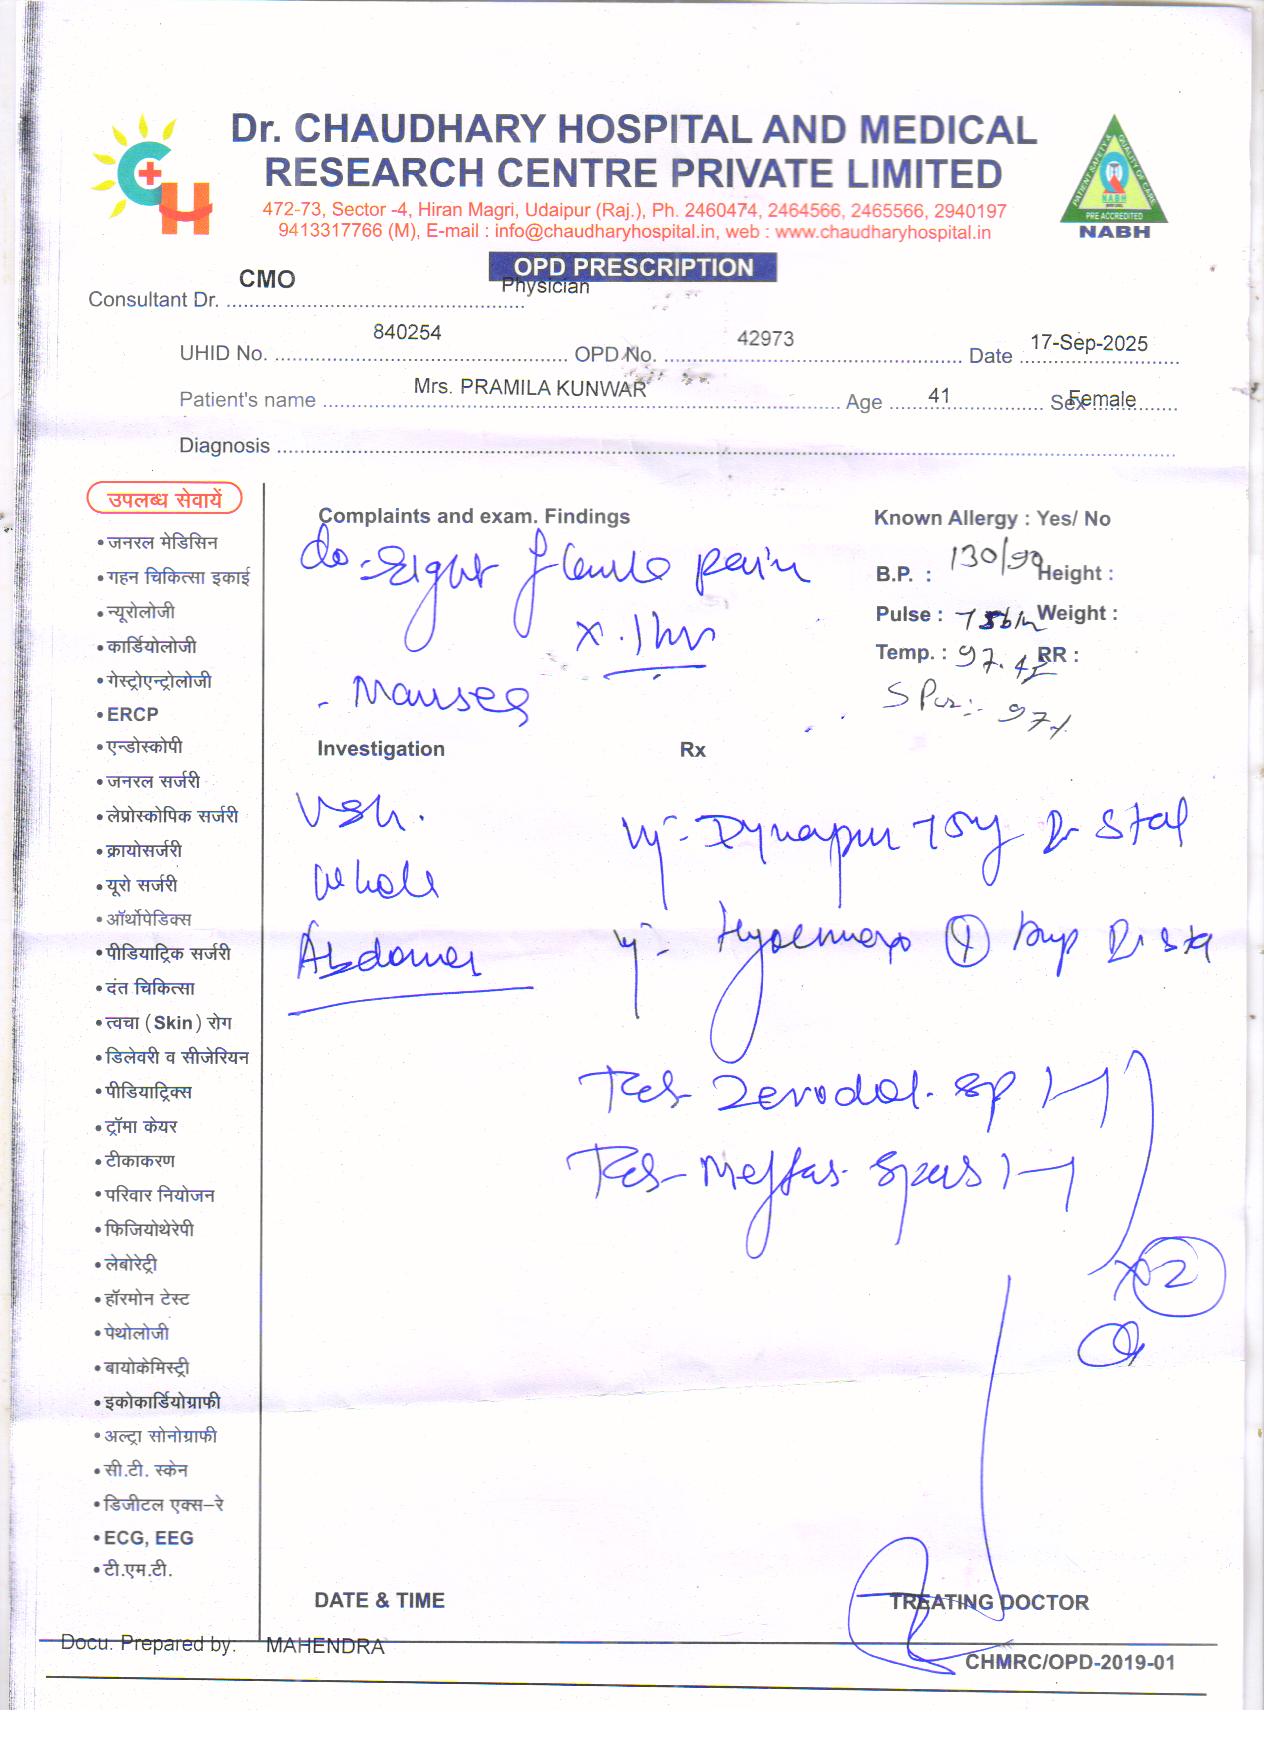 Dr. CHAUDHARY HOSPITAL AND MEDICAL
RESEARCH CENTRE PRIVATE LIMITED
472-73, Sector -4, Hiran Magri, Udaipur (Raj.), Ph. 2460474, 2464566, 2465566, 2940197
9413317766 (M), E-mail : info@chaudharyhospital.in, web : www.chaudharyhospital.in
PATIENT SAFETY & QUALITY OF CARE
NABH
PRE ACCREDITED
NABH
OPD PRESCRIPTION
Consultant Dr. CMO Physician
UHID No. 840254 OPD No. 42973 Date 17-Sep-2025
Patient's name Mrs. PRAMILA KUNWAR Age 41 Sex Female
Diagnosis
उपलब्ध सेवायें
•जनरल मेडिसिन
•गहन चिकित्सा इकाई
•न्यूरोलोजी
•कार्डियोलोजी
•गेस्ट्रोएन्ट्रोलोजी
•ERCP
•एन्डोस्कोपी
•जनरल सर्जरी
•लेप्रोस्कोपिक सर्जरी
•क्रायोसर्जरी
•यूरो सर्जरी
•ऑर्थोपेडिक्स
•पीडियाट्रिक सर्जरी
•दंत चिकित्सा
•त्वचा (Skin) रोग
•डिलेवरी व सीजेरियन
•पीडियाट्रिक्स
•ट्रॉमा केयर
•टीकाकरण
•परिवार नियोजन
•फिजियोथेरेपी
•लेबोरेट्री
•हॉरमोन टेस्ट
•पेथोलोजी
•बायोकेमिस्ट्री
•इकोकार्डियोग्राफी
•अल्ट्रा सोनोग्राफी
•सी.टी. स्केन
•डिजीटल एक्स-रे
•ECG, EEG
•टी.एम.टी.
Complaints and exam. Findings
c/o - Right flank pain
x. 1 hr
- Nausea
Known Allergy : Yes/ No
B.P. : 130/90 Height :
Pulse : Weight :
Temp. : 97.4F RR :
SPO2:- 97%
Investigation
USG.
Whole
Abdomen
Rx
Inj:- Dynapar 75mg stat
Inj:- 1 Amp
Tab- Zerodol-sp 1-1
Tab- Meftas-Spas 1-1
x 2
DATE & TIME
TREATING DOCTOR
Docu. Prepared by: MAHENDRA
CHMRC/OPD-2019-01